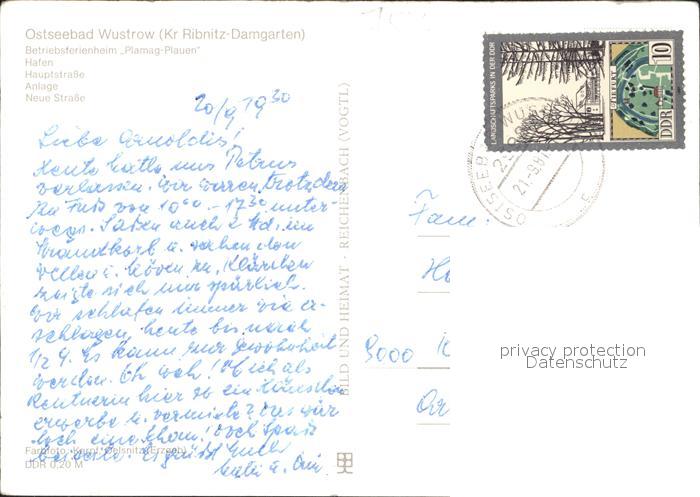 Ostseebad Wustrow (Kr Ribnitz-Damgarten)
Betriebsferienheim „Plamag-Plauen"
Hafen
Hauptstraße
Anlage
Neue Straße
Liebe Arnoldis!
Heute hatte uns Petrus
verlassen. Wir waren trotzdem
zu Fuß von 10⁰⁰ - 17³⁰ unter-
wegs. Saßen auch 2 Std. im
Strandkorb u. sahen den
Wellen u. Möven zu. Klärchen
zeigte sich nur spärlich.
Wir schlafen immer wie er-
schlagen, heute bis nach
1/2 9. Es kann zur Gewohnheit
werden. Oh weh! Ob ich als
Rentnerin hier so ein Häuschen
erwerbe u. vermiete? Das wär
doch eine
Es grüßt Euch
u.
Farbfoto: Karpf, Oelsnitz (Erzgeb)
DDR 0,20 M
BILD UND HEIMAT · REICHENBACH (VOGTL)
LANDSCHAFTSPARKS IN DER DDR
DDR
10
OSTSEEBAD WUSTROW
Fam.
9000
privacy protection
Datenschutz